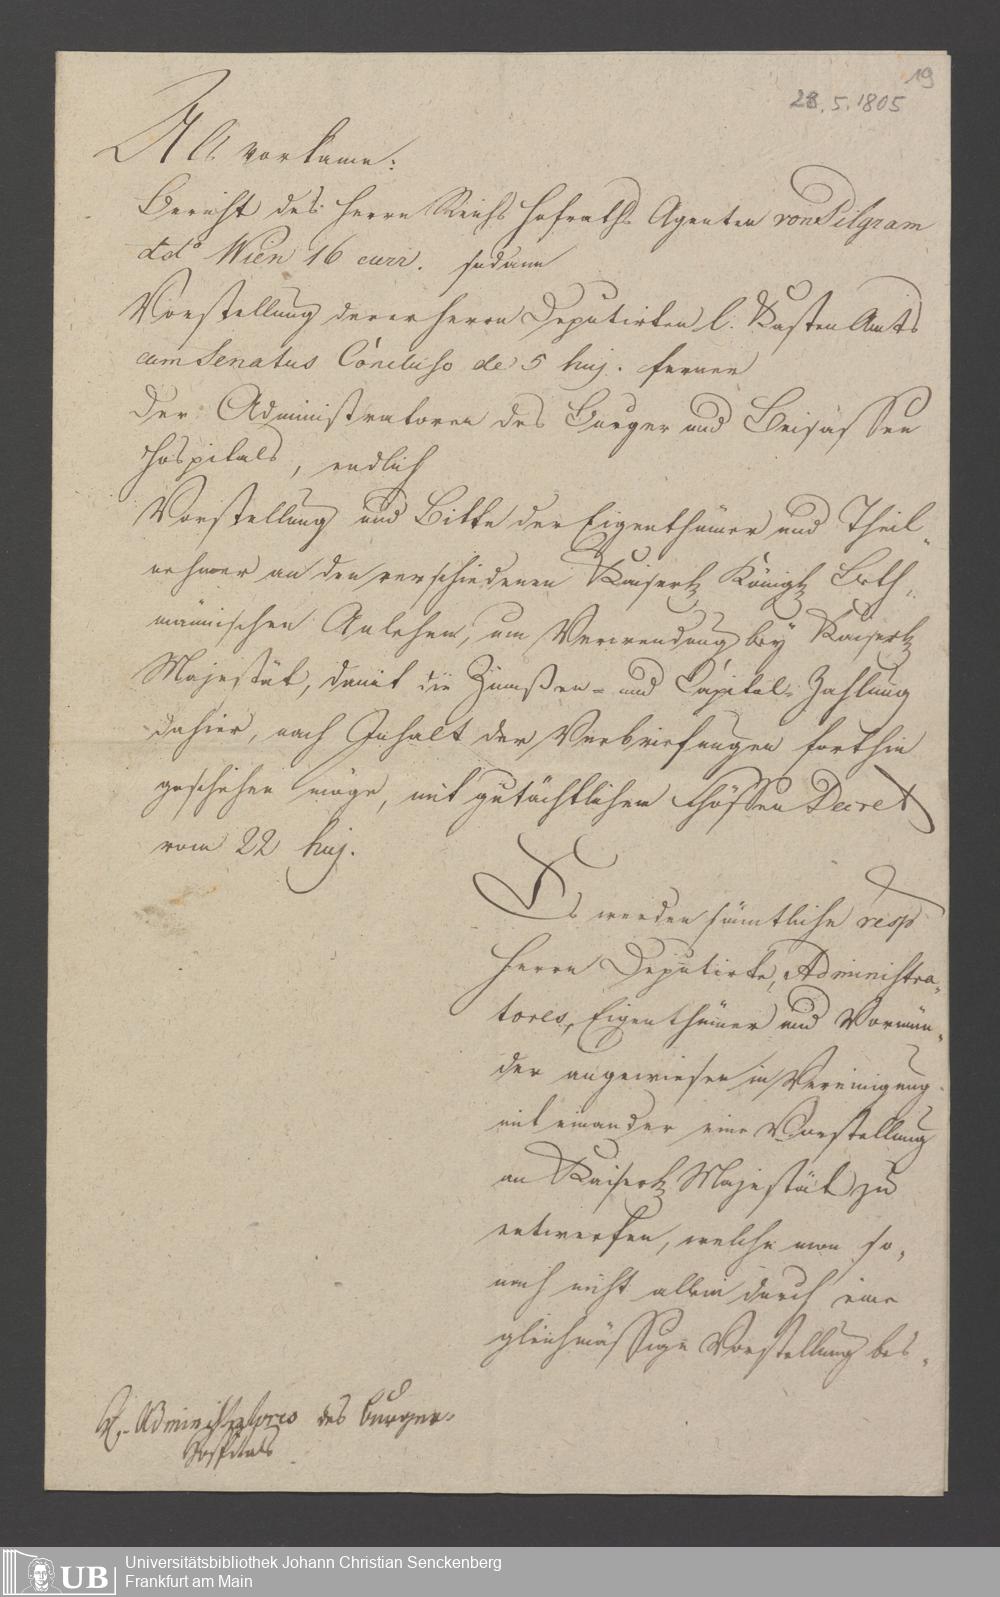 19
28.5.1805
Als vorkame:
Bericht des Herrn Reichs Hofraths Agenten von Pilgram
ddo Wien 16 curr. sodann
Vorstellung derer Herrn Deputirten l. Kasten Amts
cum Senatus Concluso de 5 huj. ferner
der Administratoren des Burger und Beisassen
Hospitals, endlich
Vorstellung und Bitte der Eigenthümer und Theil„
nehmer an den verschiedenen Kaiserl. Königl. Beth„
männischen Anlehen, um Verwendung bey Kaiserl.
Majestät, damit die Zinnßen- und Capital-Zahlung
dahier, nach Inhalt der Verbriefungen forthin
geschehen möge, mit gutächtlichem Schöffen Decret
vom 22 huj.
Es werden sämtliche resp
Herrn Deputirte, Administra„
tores, Eigenthümer und Vormün„
der angewiesen in Vereinigung
mit einander eine Vorstellung
an Kaiserl. Majestät zu
entwerfen, welche man so„
nach nicht allein durch eine
gleichmässige Vorstellung bes„
Administratores des Burger-
Hospitals
UB
Universitätsbibliothek Johann Christian Senckenberg
Frankfurt am Main